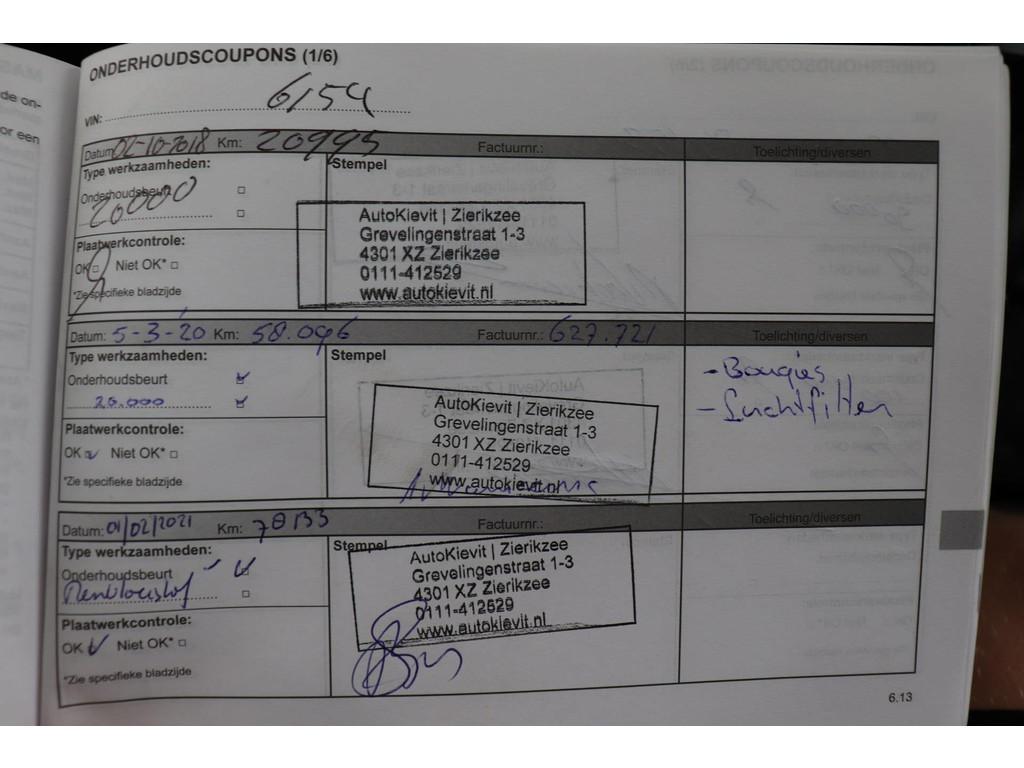 de on-
or een
ONDERHOUDSCOUPONS (1/6)
VIN: 6154
Datum: 02-10-2018 Km: 20995 Factuurnr.: Toelichting/diversen
Type werkzaamheden: Stempel
Onderhoudsbeurt
20000
Plaatwerkcontrole:
OK Niet OK*
*Zie specifieke bladzijde
AutoKievit | Zierikzee
Grevelingenstraat 1-3
4301 XZ Zierikzee
0111-412529
www.autokievit.nl
Datum: 5-3-20 Km: 58.096 Factuurnr.: 627.721 Toelichting/diversen
Type werkzaamheden: Stempel
Onderhoudsbeurt
20.000
Plaatwerkcontrole:
OK Niet OK*
*Zie specifieke bladzijde
AutoKievit | Zierikzee
Grevelingenstraat 1-3
4301 XZ Zierikzee
0111-412529
www.autokievit.nl
- Bougies
- Luchtfilter
Datum: 01/02/2021 Km: 78133 Factuurnr.: Toelichting/diversen
Type werkzaamheden: Stempel
Onderhoudsbeurt
Remvloeistof
Plaatwerkcontrole:
OK Niet OK*
*Zie specifieke bladzijde
AutoKievit | Zierikzee
Grevelingenstraat 1-3
4301 XZ Zierikzee
0111-412529
www.autokievit.nl
6.13